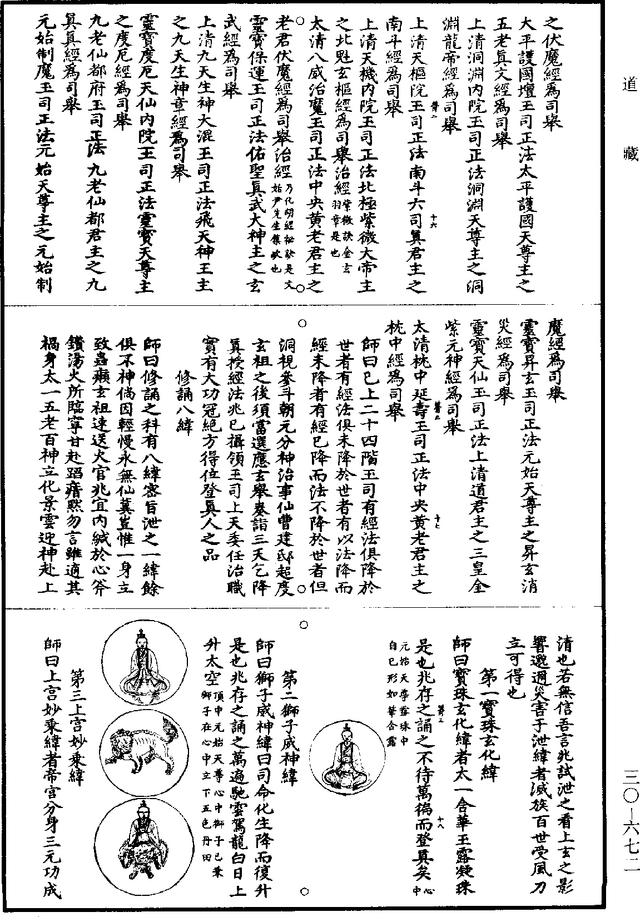 道藏
之伏魔經爲司舉
太平護國壇玉司正法太平護國天尊主之
五老真文經爲司舉
上清洞淵內院玉司正法洞淵天尊主之洞
淵龍帝經爲司舉
上清天樞院玉司正法南斗六司真君主之
南斗經爲司舉
上清天機內院玉司正法北極紫微大帝主
之北魁玄樞經爲司舉治經
太清八威治魔玉司正法中央黃老君主之
老君伏魔經爲司舉治經
靈寶保運玉司正法佑聖真武大神主之玄
武經爲司舉
上清九天生神大混玉司正法飛天神王主
之九天生神章經爲司舉
靈寶度厄天仙內院玉司正法靈寶天尊主
之度厄經爲司舉
九老仙都府玉司正法九老仙都君主之九
真真經爲司舉
元始制魔玉司正法元始天尊主之元始制
魔經爲司舉
靈寶昇玄玉司正法元始天尊主之昇玄消
災經爲司舉
靈寶天仙玉司正法上清道君主之三皇金
紫元神經爲司舉
太清桃中延壽玉司正法中央黃老君主之
桃中經爲司舉
師曰已上二十四階玉司有經法俱降於
世者有經法俱未降於世者有以法降而
經未降者有經已降而法不降於世者但
洞視參斗朝元分神治事仙曹建邸超度
玄祖之後須當選應玄舉奏詣三天乞降
真授經法兆已攝領玉司上天委任治職
實有大功冠絕方得位登真人之品
修誦八緯
師曰修誦之科有八緯密旨泄之一緯餘
俱不神倘因輕慢永無仙冀豈惟一身立
致蟲癩玄祖逮送火官兆宜內緘於心斧
鑕湯火所臨寧甘赴蹈瘖默勿言雖適其
禍身太一五老百神立化景雲迎神赴上
清也若無信吾言兆試泄之看上玄之影
響邀遏災害于泄緯者滅族百世受風刀
立可得也
第一寶珠玄化緯
師曰寶珠玄化緯者太一含華玉露凝珠
是也兆存之誦之不待萬徧而登真矣心中
元始天尊靈珠中
自已形如嬰含露
第二獅子威神緯
師曰獅子威神緯曰司命化生降而復升
是也兆存之誦之萬適馳雲駕龍白日上
升太空頂中元始天尊心中獅子已乘
獅子在心中立下五色丹田
第三上宮妙乘緯
師曰上宮妙乘緯者帝宮分身三元功成
三〇—六七二